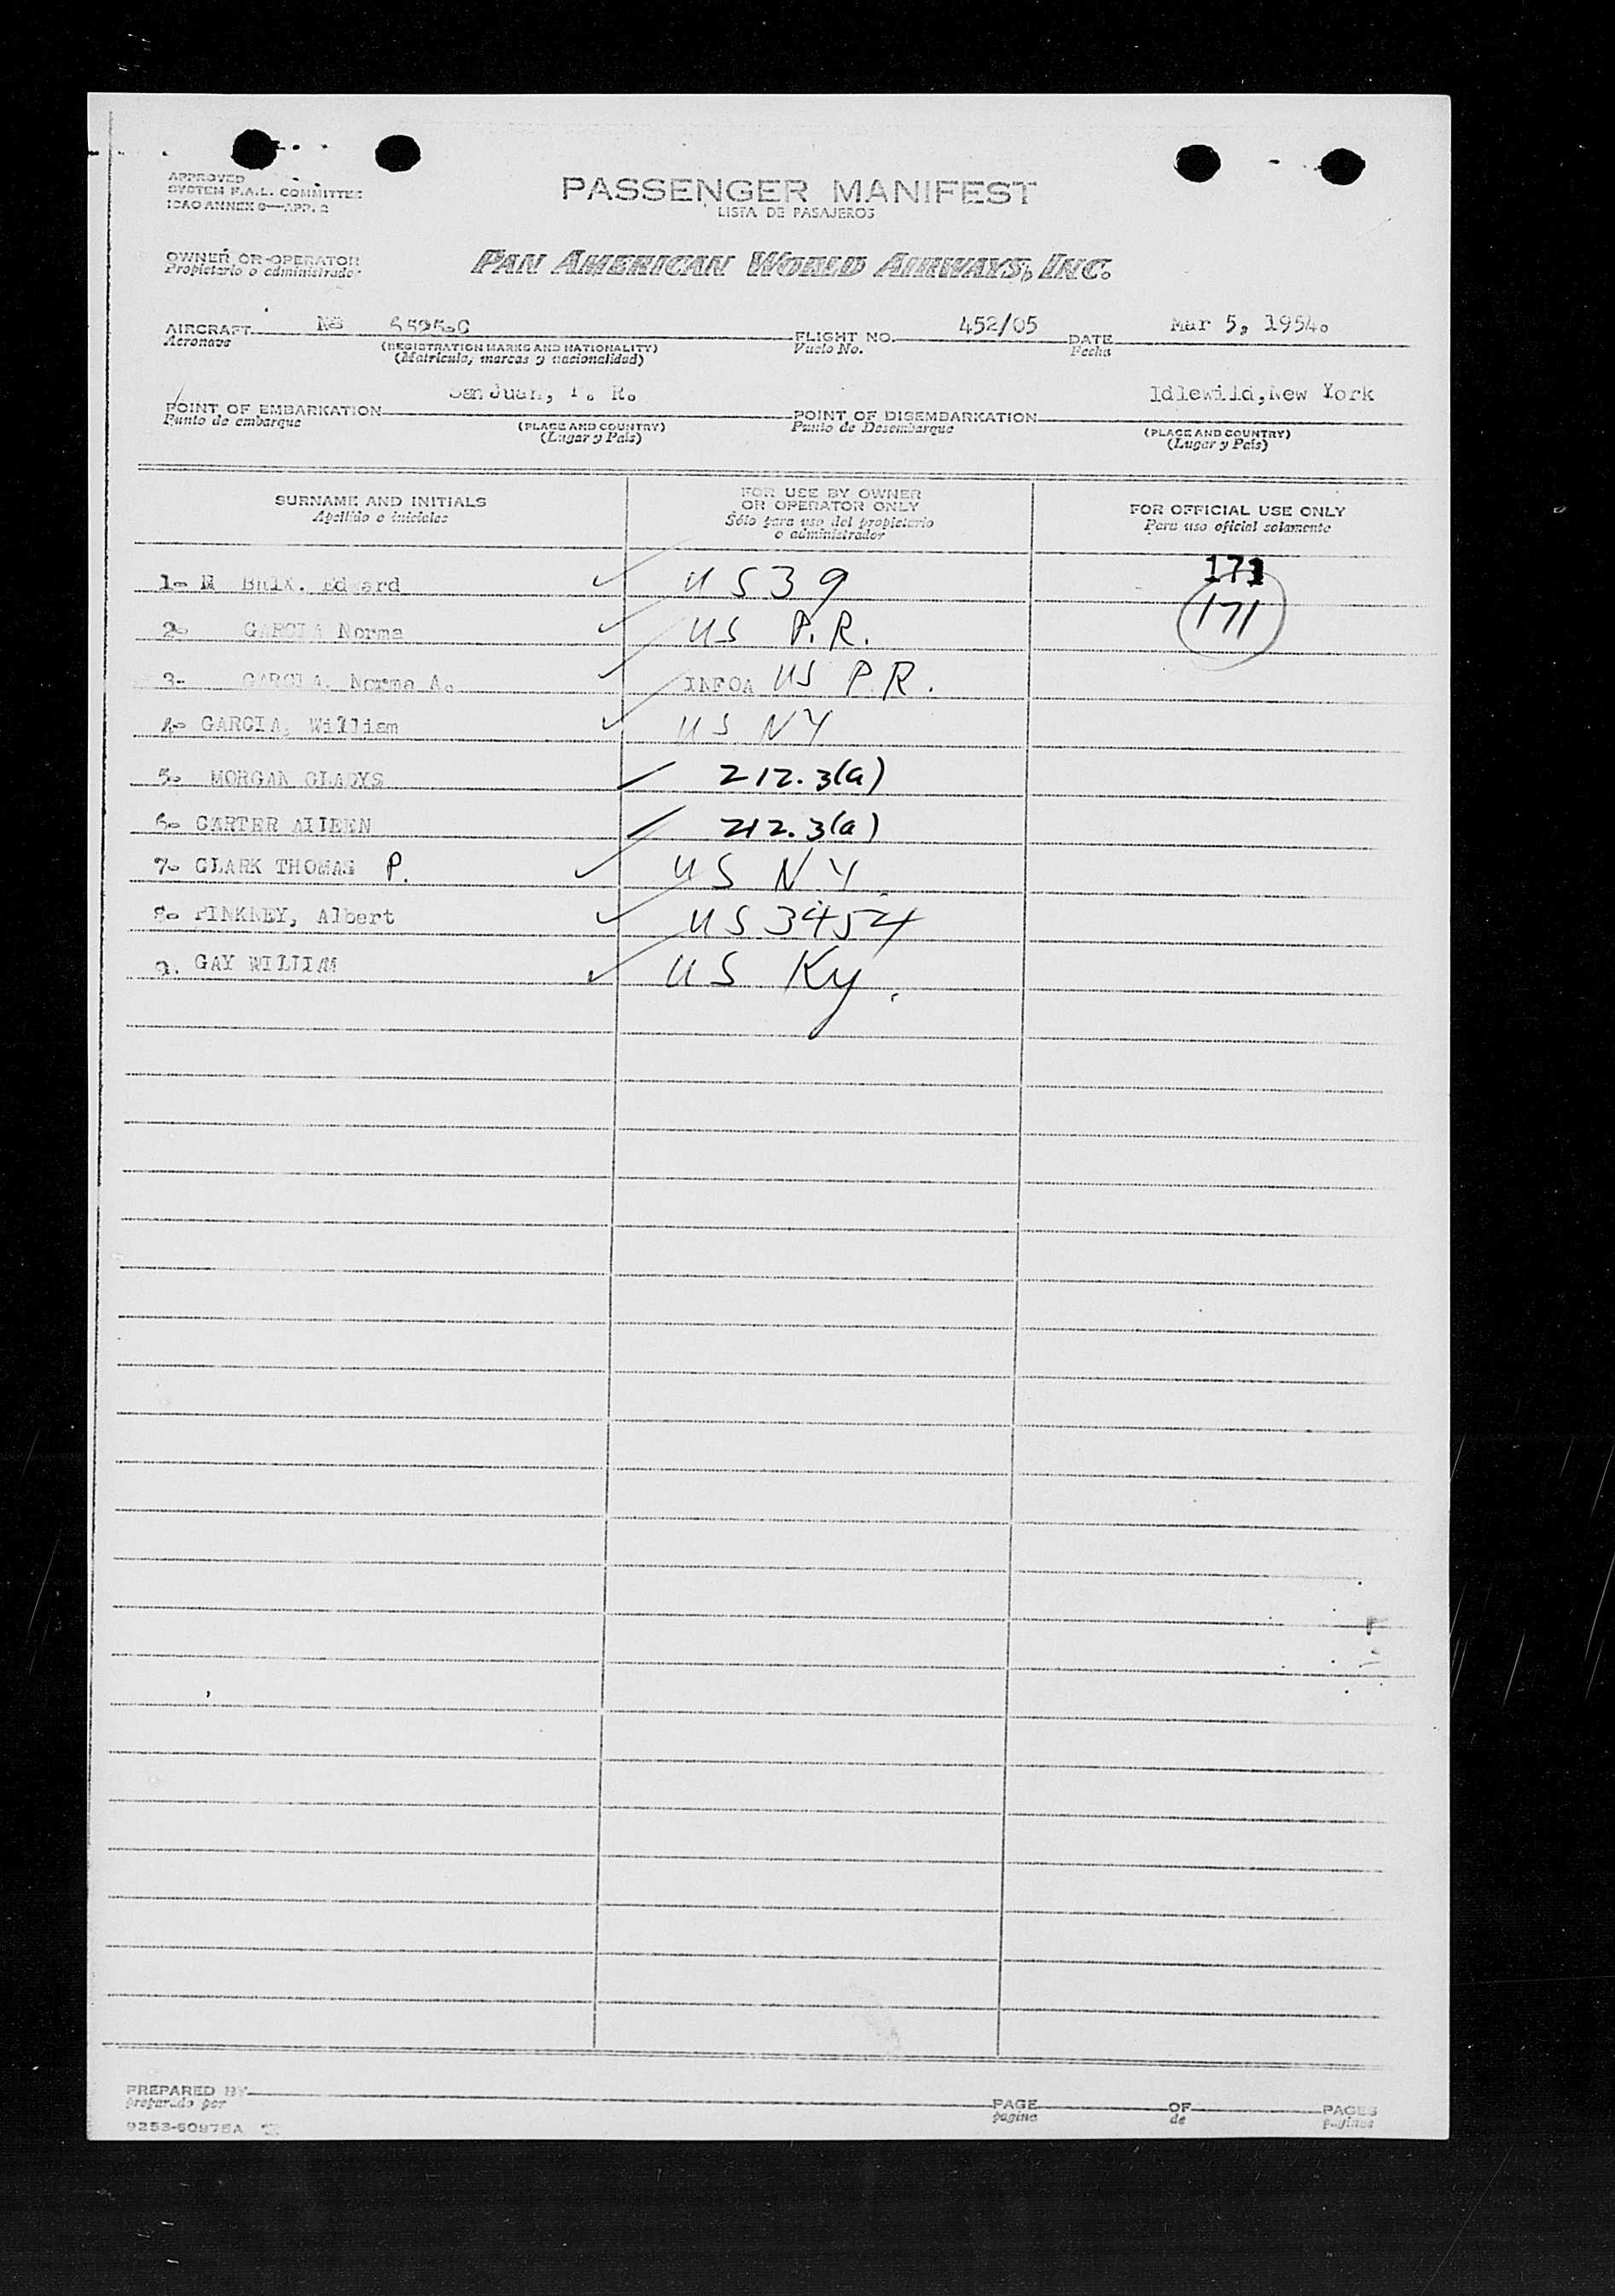 APPROVED
SYSTEM F.A.L. COMMITTEE
ICAO ANNEX 9—APP. 2
PASSENGER MANIFEST
LISTA DE PASAJEROS
OWNER OR OPERATOR
Propietario o administrador
PAN AMERICAN WORLD AIRWAYS, INC.
AIRCRAFT
Aeronave
(REGISTRATION MARKS AND NATIONALITY)
(Matrícula, marcas y nacionalidad)
FLIGHT NO. 452/05
Vuelo No.
DATE Mar 5, 1954.
Fecha
POINT OF EMBARKATION San Juan, P. R.
Punto de embarque
(PLACE AND COUNTRY)
(Lugar y País)
POINT OF DISEMBARKATION Idlewild,New York
Punto de Desembarque
(PLACE AND COUNTRY)
(Lugar y País)
SURNAME AND INITIALS
Apellido e iniciales
FOR USE BY OWNER
OR OPERATOR ONLY
Sólo para uso del propietario
o administrador
FOR OFFICIAL USE ONLY
Para uso oficial solamente
1- Edward US 39 171
2- GARCIA Norma US P.R. 171
3- GARCIA, Norma A. US P.R.
4- GARCIA, William US NY
5- MORGAN GLADYS 212.3(a)
6- CARTER 212.3(a)
7- CLARK THOMAS P. US N.Y.
8- PINKNEY, Albert US 3454
9. GAY WILLIAM US Ky.
PREPARED BY
preparado por
PAGE
pagina
OF
de
PAGES
paginas